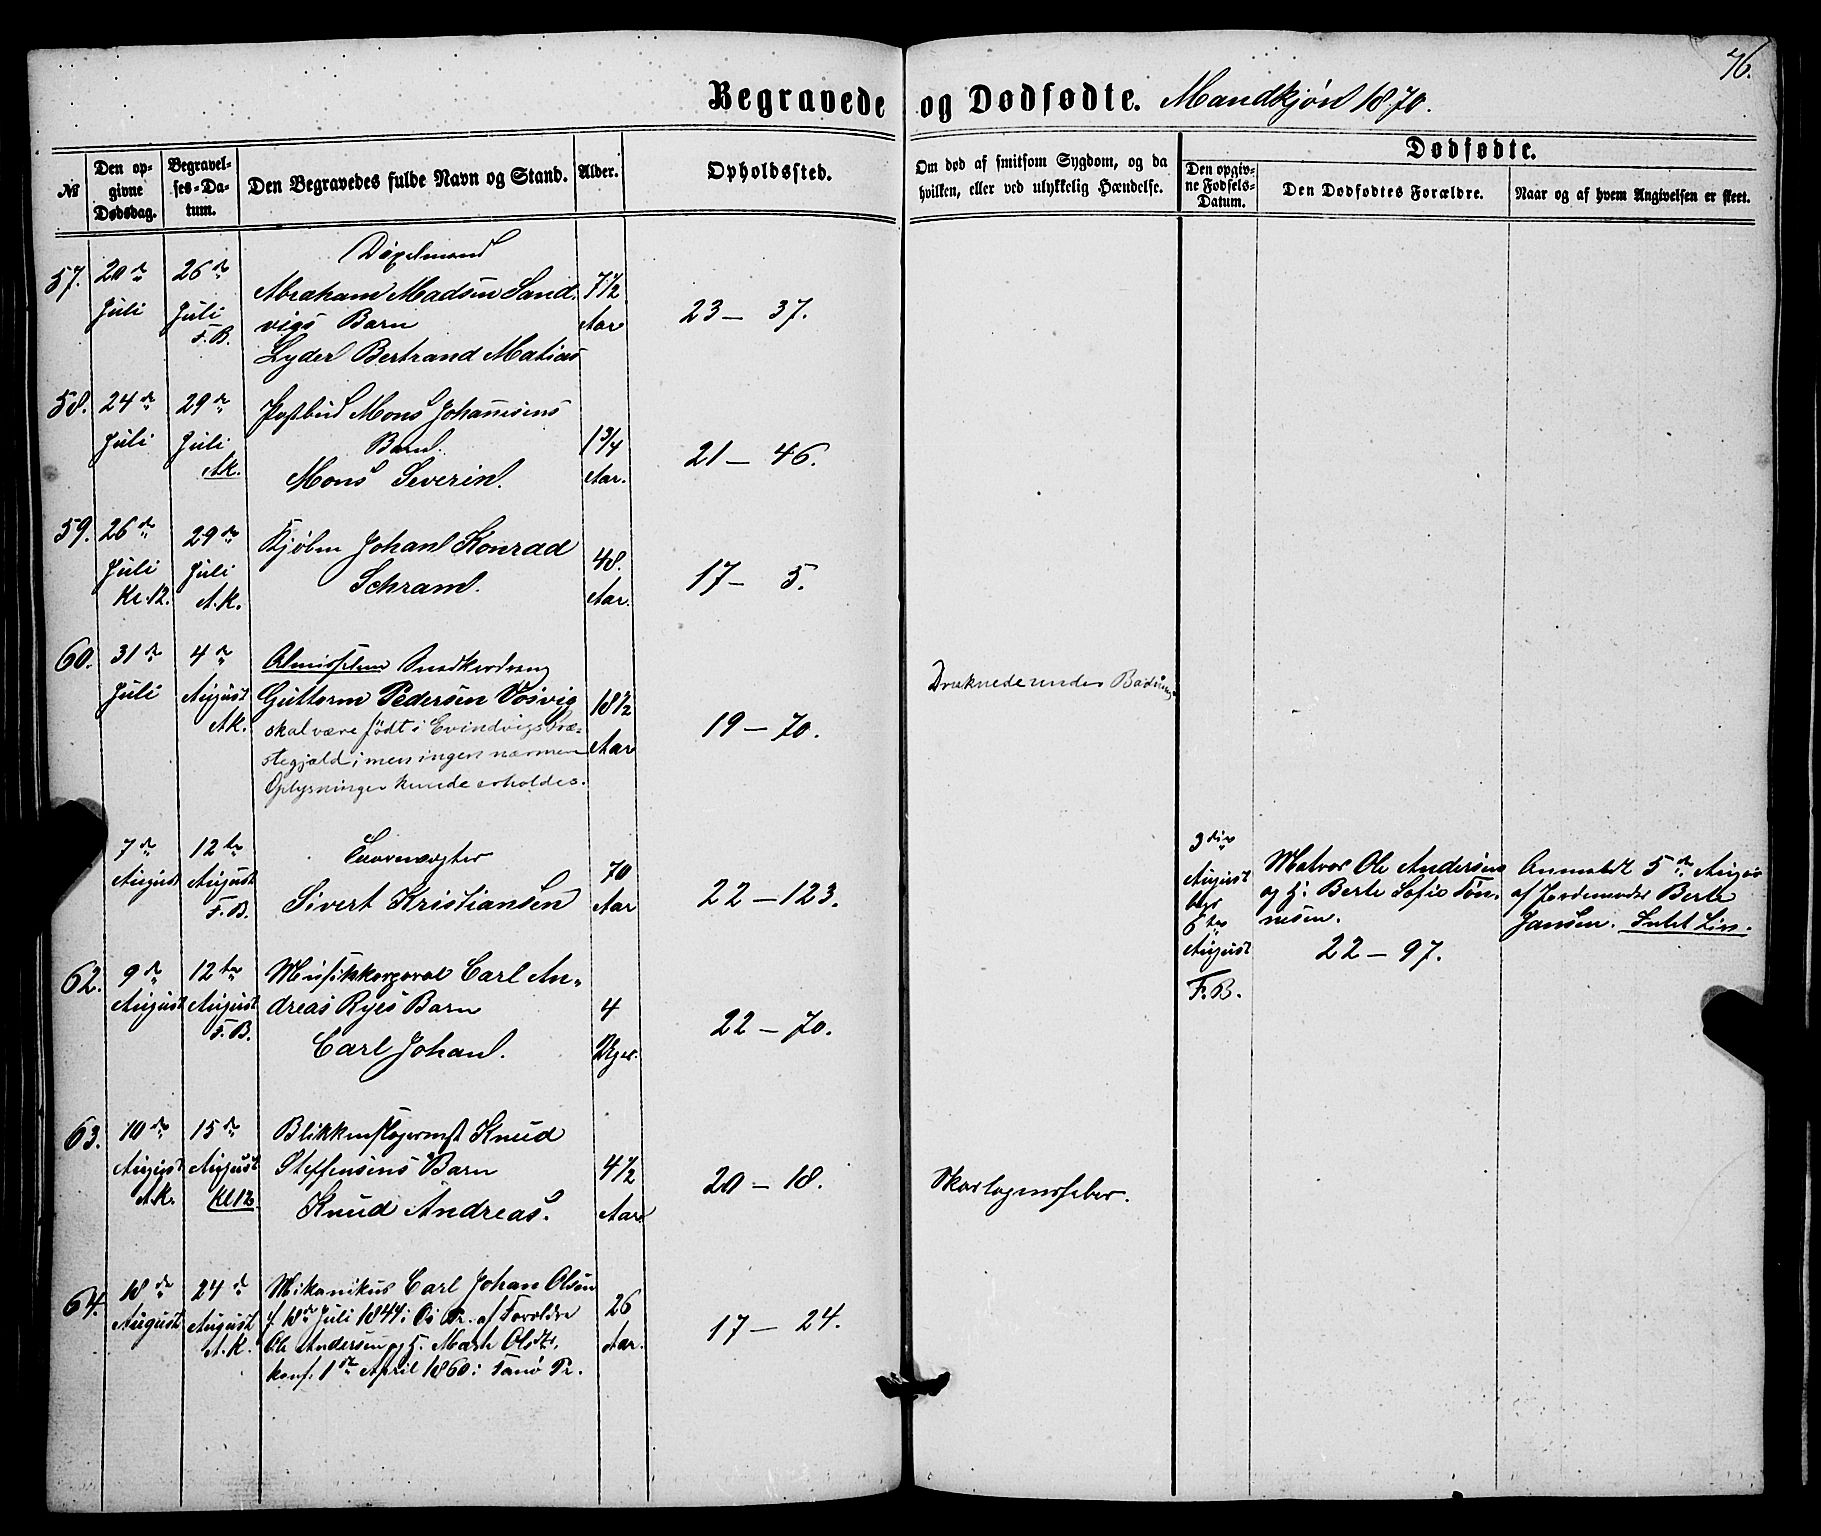 76.
Begravede og Dødfødte. Mandkjøn 1870.
№
Den opgivne Dødsdag.
Begravelses-Datum.
Den Begravedes fulde Navn og Stand.
Alder.
Opholdssted.
Om død af smitsom Sygdom, og da hvilken, eller ved ulykkelig Hændelse.
Dødfødte.
Den opgivne Fødsels-Datum.
Den Dødfødtes Forældre.
Naar og af hvem Angivelsen er skeet.
57.
20de Juli
26de Juli F.B.
Abraham Madsen Sand-
vigs Barn
Lyder Bertrand Matias
7 1/2 Aar
23 — 37.
58.
24de Juli
29de Juli A.K.
Postbud Mons Johannesens
Barn.
Mons Severin.
1 3/4 Aar.
21 — 46.
59.
26de Juli Kl. 12.
29de Juli A.K.
Kjøbm Johan Konrad
Schram.
48. Aar.
17 — 5.
60.
31te Juli
4de August A.K.
Snedkerdreng
Guttorm Pedersen Vosvig
skal være født i Evindvigs Præ-
stegjæld, men ingen nærmere
Oplysninger kunde erholdes.
18 1/2 Aar
19 — 70.
Druknede under Badning.
7de August
12te August F.B.
Sivert Kristiansen
70 Aar
22 — 123.
3die August
8de August
F.B.
Matros Ole Andersen
og H: Berte Sofie Tøn-
nesen.
22 — 97.
Anmeldt 5de August
af Jordemoder Berte
Jansen. Intet Liv.
62.
9de August
12te August F.B.
Musikkorporal Carl An-
dreas Ryes Barn
Carl Johan.
4 Uger.
22 — 70.
63.
10de August A.K.
15de August Kl 12.
Blikkenslagermst Knud
Steffensens Barn
Knud Andreas.
4 1/2 Aar
20 — 18.
Skarlagensfeber.
64.
18de August
24de August A.K.
Mekanikus Carl Johan Olsen
f. 18de Juli 1844 i Os Pr. af Forældre
Ole Andersen og H. Marte Olsdt.
konf. 1ste April 1860 i Fanø Pr.
26 Aar.
17 — 24.